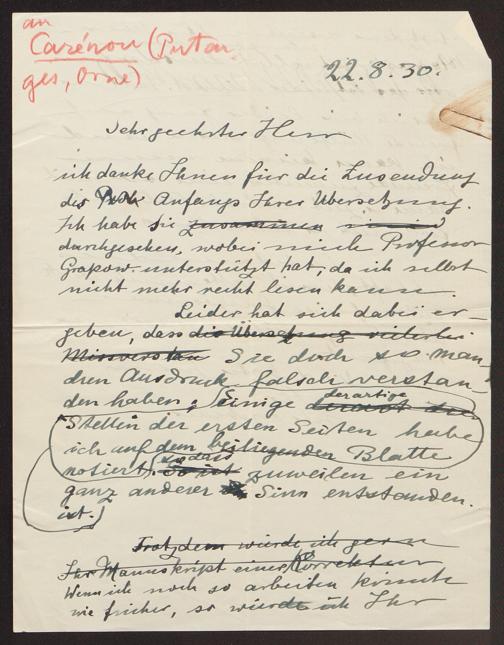 an
Cazénou (Putan-
ges, Orne)
22.8.30.
Sehr geehrter Herr
ich danke Ihnen für die Zusendung
des Anfangs Ihrer Übersetzung.
Ich habe sie zusammen
durchgesehen, wobei mich Professor
Grapow unterstützt hat, da ich selbst
nicht mehr recht lesen kann.
Leider hat sich dabei er-
geben, dass die Übersetzung vielerlei
Missverstän Sie doch so man-
chen Ausdruck falsch verstan-
den haben; Einige derartige
Stellen der ersten Seiten habe
ich auf dem beiliegenden Blatte
notiert. sodass So ist zuweilen ein
ganz anderer Sinn entstanden.
ist.)
Trotzdem würde ich gern
Ihr Manuskript einer Korrektur
Wenn ich noch so arbeiten könnte
wie früher, so würde ich Ihr